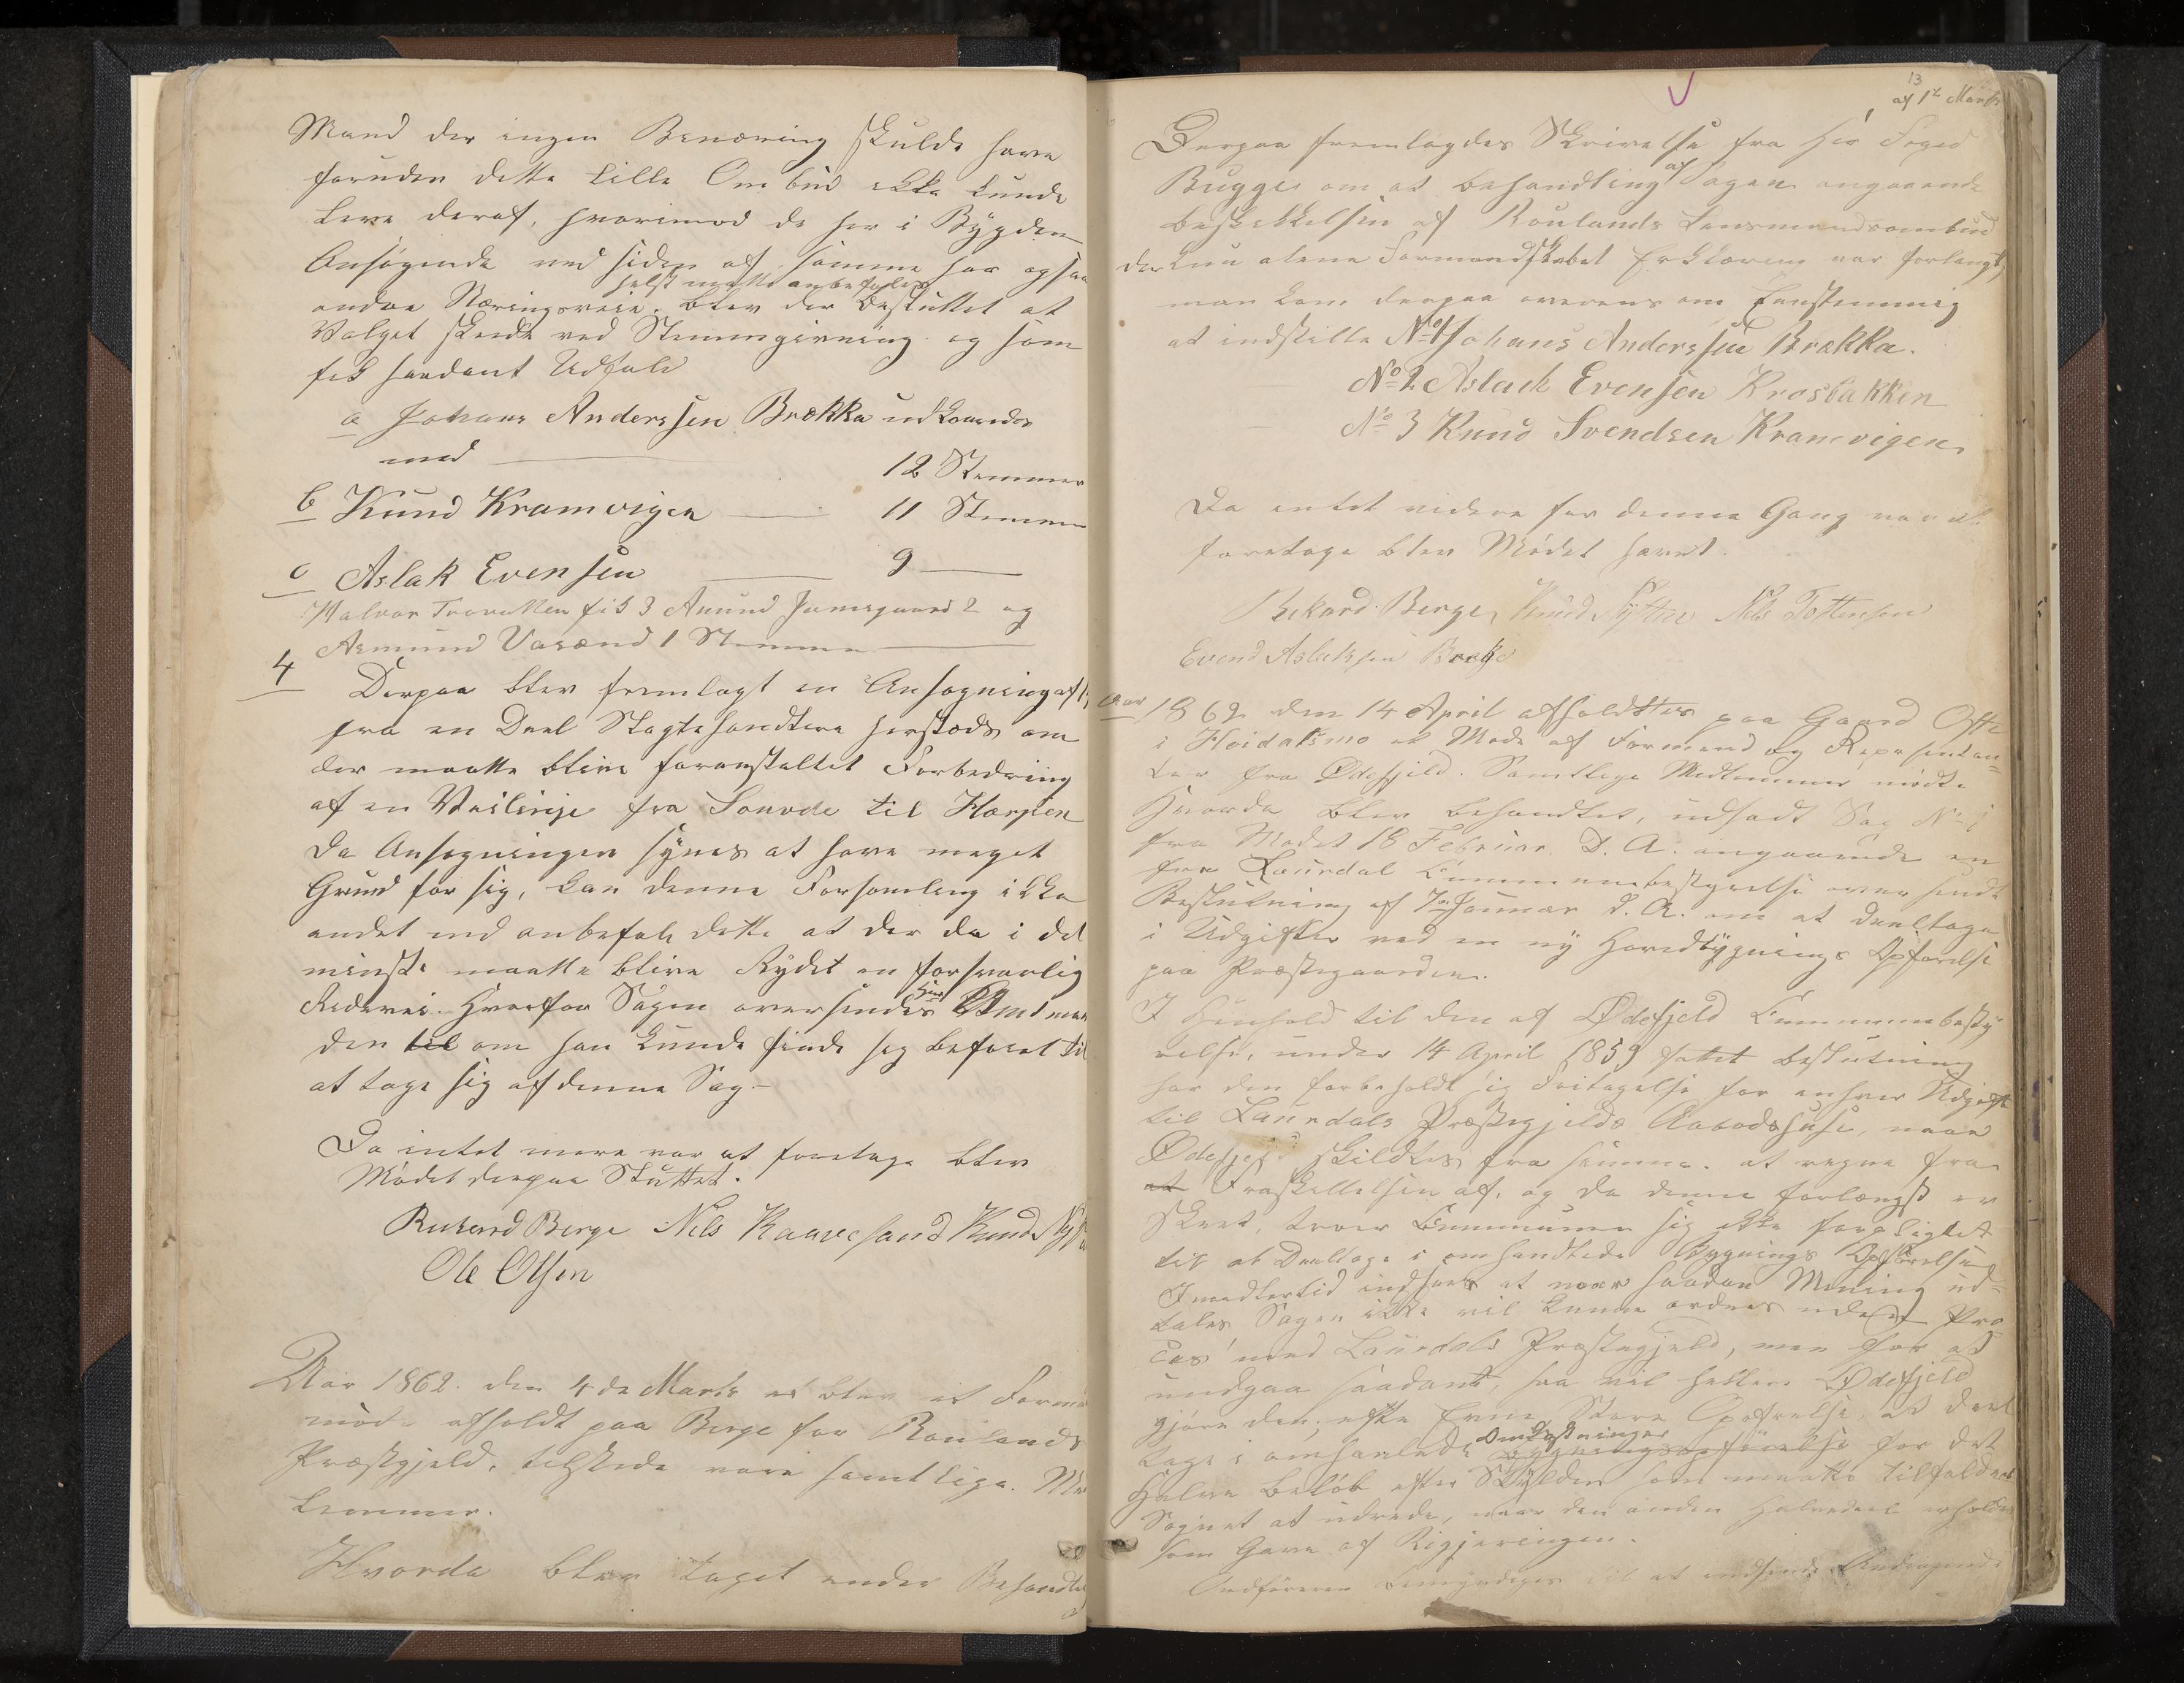 Mand der ingen Benæring skulde have
foruden dette lille Ombud ikke kunde
leve deraf, hvorimod de her i Bygden
Ansøgende ved siden af samme har ogsaa
helst maatte anbefales
andre Næringsveie, blev der besluttet at
Valget skeede ved Stemmgivning og som
fik saadant Udfald
a Johans Anderssen Brækka udkaaredes
med 12 Stemmer
b Knud Kramvigen 11 Stemmer
c Aslak Evensen 9
Halvor fik 3 Amund 2 og
Asmund Vaaænd 1 Stemme
4
Derpaa blev fremlagt en Ansøgning af
fra en Deel herstæds om
der maatte blive foranstaltet Forbedring
af en Veilinje fra Songde til
Da Ansøgningen synes at have meget
Grund for sig, kan denne Forsamling ikke
andet end anbefale dette at der da i det
mindste maatte blive Rydet en forsvarlig
Ridevei. Hvorfor Sagen oversendes Hr Amtman
den til om han kunde finde sig beføiet til
at tage sig af denne Sag.-
Da intet mere var at foretage blev
Mødet derpaa Sluttet.
Rikard Berge Nils Kaavesand Knud
Ole Olsen
Aar 1862. den 4de Marts blev et Form
møde afholdt paa Berge for Raulands
Præstgjeld. tilstede vare samtlige Med
lemmer.
Hvorda blev taget under Behandl
13
af 1te Marts
Derpaa fremlagdes Skrivelse fra Hr Foged
Bugge om at behandling af Sagen angaaende
beskikkelsen af Raulands Lensmandsombud
der kun alene Formandskabet Erklæring var forlangt,
man kom derpaa overens om Eenstemmig
at indstille No 1 Johans Anderssen Brække.
No 2 Aslack Evensen Krosbakken
No 3 Knud Svendsen Kramvigen
Da intet videre for denne Gang var at
foretage blev Mødet hævet.
Rikard Berge, Knud Nils Tostensen
Evend Aslaksen Berge
Aar 1862 den 14 April afholdttes paa Gaard Offte
i Høidalsmo et Møde af Formænd og Repesentan=
ter fra Ødefjeld. Samtlige Medlemmer mødte
Hvorda blev behandlet, udsadt Sag No 1
fra Mødet 18 Februar D. A. angaaende en
fra Laurdal Kummunebestyrelse oversendt
Beslutning af 7de Januar d. A. om at deeltage
i Udgifter ved en ny Hovedbygnings Opførelse
paa Præstegaarden.
I Henhold til den af Ødefjeld Kummunebesty
relse, under 14 April 1859 fattet beslutning
har den forbeholdt sig Fritagelse for enhver Udgift
til Laurdals Præstegjelds Aabodshuse, naar
Ødefjeld skildtes fra samme. at regne fra
at Fraskillelsen af, og da denne forlængst er
skeet, troer Kummunen sig ikke forpligtet
til at Deeltage i omhandlede Bygnings Opførelse
Imidlertid indsees at naar saadan Mening ud=
tales Sagen ikke vil kunne ordnes uden Pro
ces med Laurdals Præstegjeld, men for at
undgaa saadant, saa vil heller Ødefjeld
gjøre den, efter Evne Store Opofrelse, at deel
tage i omhanlede Omkostninger bygningsopførelse for det
Halve beløb efter Skylden som maatte tilfalde
Sognet at udrede, naar den anden Halvedeel erholdes
som Gave af Rigjeringen.
Ordføreren bemyndiges til at indsende Andragende